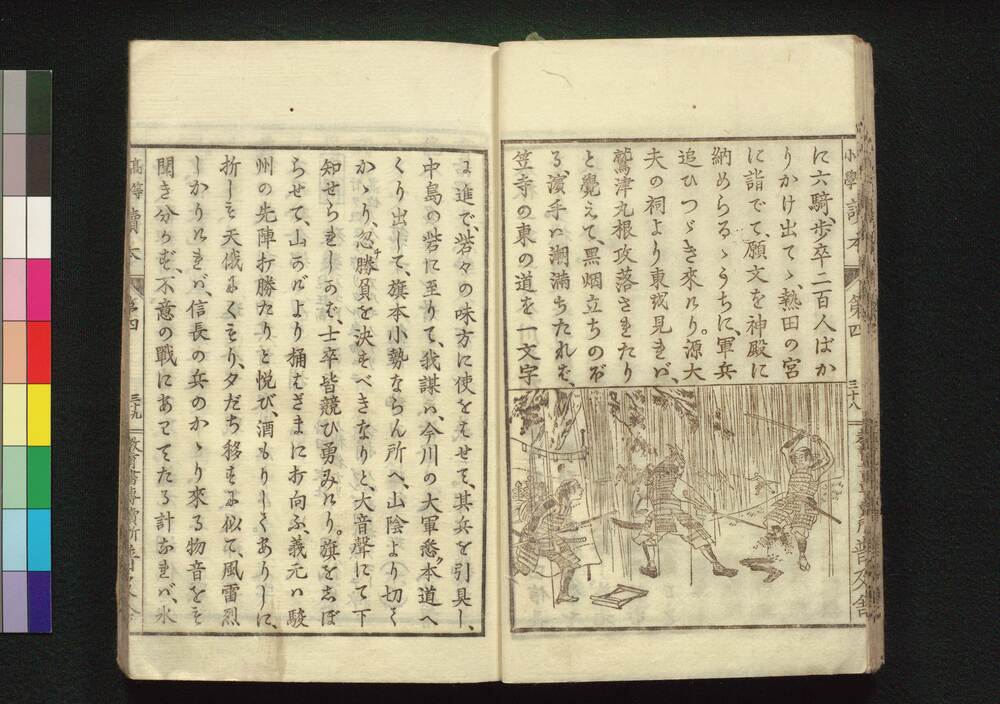 小學讀本
第四
三十八
に六騎、歩卒二百人ばか
りかけ出でゝ、熱田の宮
に詣でて、願文を神殿に
納めらるゝうちに、軍兵
追ひつゞき來れり。源大
夫の祠より東を見れば、
鷲津丸根攻落されたり
と覺えて、黒烟立ちのぼ
る、濱手は潮滿ちたれば、
笠寺の東の道を一文字
に進で、砦々の味方に使をはせて、其兵を引具し、
中島の砦に至りて、我謀は、今川の大軍悉本道へ
くり出して、旗本小勢ならん所へ、山陰より切て
かゝり、忽チ勝負を決すべきなりと、大音聲にて下
知せられしかば、士卒皆競ひ勇みけり。旗をしぼ
らせて、山かげより桶はざまにお向ふ、義元は駿
州の先陣打勝たりと悦び、酒もりしてありしに、
折しも天俄にくもり、夕だち移すに似て、風雷烈
しかりければ、信長の兵のかゝり來る物音をも
聞き分かず、不意の戰にあわてたる計なれば、水
高等讀本
第四
三十九